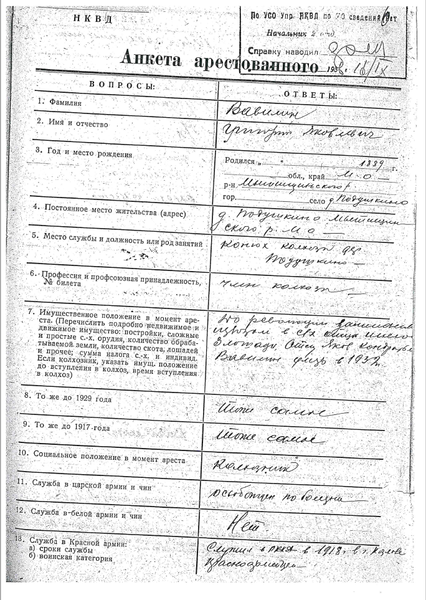 НКВД
По УСО Упр. НКВД по
сведений нет
Начальник
Справку наводил
Анкета арестованного
ВОПРОСЫ:
ОТВЕТЫ:
1. Фамилия
Вавилин
2. Имя и отчество
Григорий Яковлевич
3. Год и место рождения
Родился „ “ 1889 г.
обл., край М-о
р-н Мытищинского р.
гор. село д. Подушкино
4. Постоянное место жительства (адрес)
д. Подушкино Мытищин
ского р. М-о
5. Место службы и должность или род занятий
Конюх колхоза дер
Подушкино
6. Профессия и профсоюзная принадлежность,
№ билета
член колхоза
7. Имущественное положение в момент аре-
ста. (Перечислить подробно недвижимое и
движимое имущество: постройки, сложные
и простые с.-х. орудия, количество обраба-
тываемой земли, количество скота, лошадей
и прочее; сумма налога с.-х. и индивид.
Если колхозник, указать имущ. положение
до вступления в колхоз, время вступления
в колхоз)
До революции
2 лошади. Отец Яков
Вавилин умер в
8. То же до 1929 года
Тоже самое
9. То же до 1917 года
Тоже самое
10. Социальное положение в момент ареста
Колхозник
11. Служба в царской армии и чин
освобожден по болезни
12. Служба в белой армии и чин
Нет
13. Служба в Красной армии:
а) сроки службы
б) воинская категория
Служил в РККА в 1918 в г.
Красноармейцем